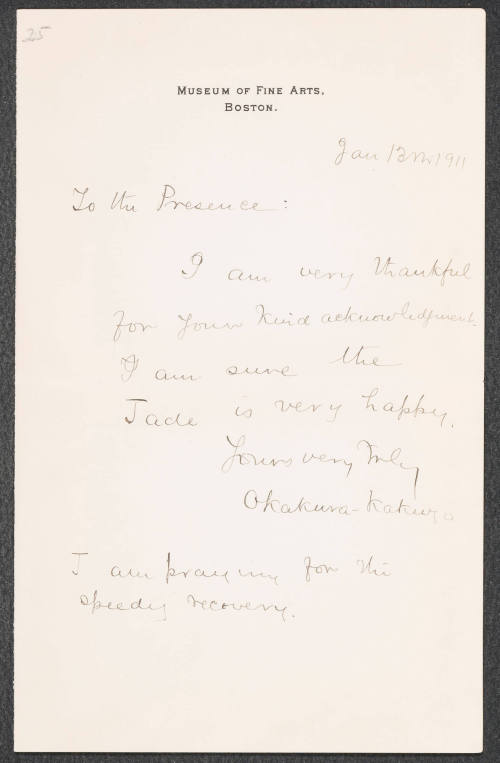 25
MUSEUM OF FINE ARTS,
BOSTON.
Jan 13th 1911
To the Presence:
I am very thankful
for your kind acknowledgment.
I am sure the
Jade is very happy.
Yours very truly
Okakura-Kakuzo
I am praying for the
speedy recovery.